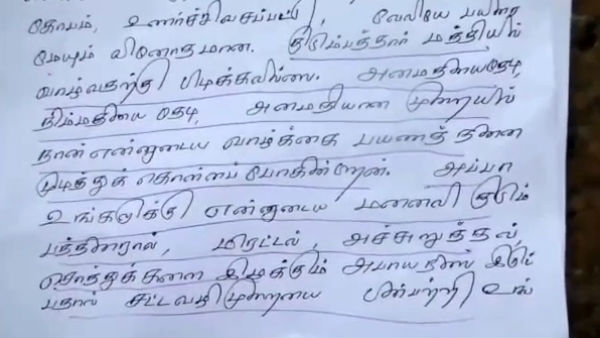 கோபம், உணர்ச்சிவசப்பட்டு, வேலியே பயிரை
மேயும் வினோதமான. குடும்பத்தார் மத்தியில்
வாழ்வதற்கு பிடிக்கவில்லை. அமைதியைதேடி,
நிம்மதியை தேடி, அமைதியான முறையில்
நான் என்னுடைய வாழ்க்கை பயணத்தினை
முடித்துக் கொள்ளப் போகின்றேன். அப்பா
உங்களுக்கு என்னுடைய மனைவி குடும்
பத்தினரால், மிரட்டல், அச்சுறுத்தல்
சொத்துக்களை இழக்கும் அபாயநிலை இருப்
பதால் சட்டவழிமுறையை பின்பற்றி உங்